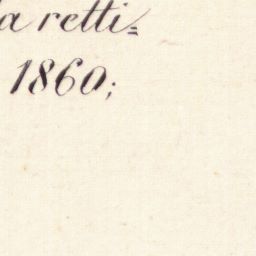 a retti=
1860;